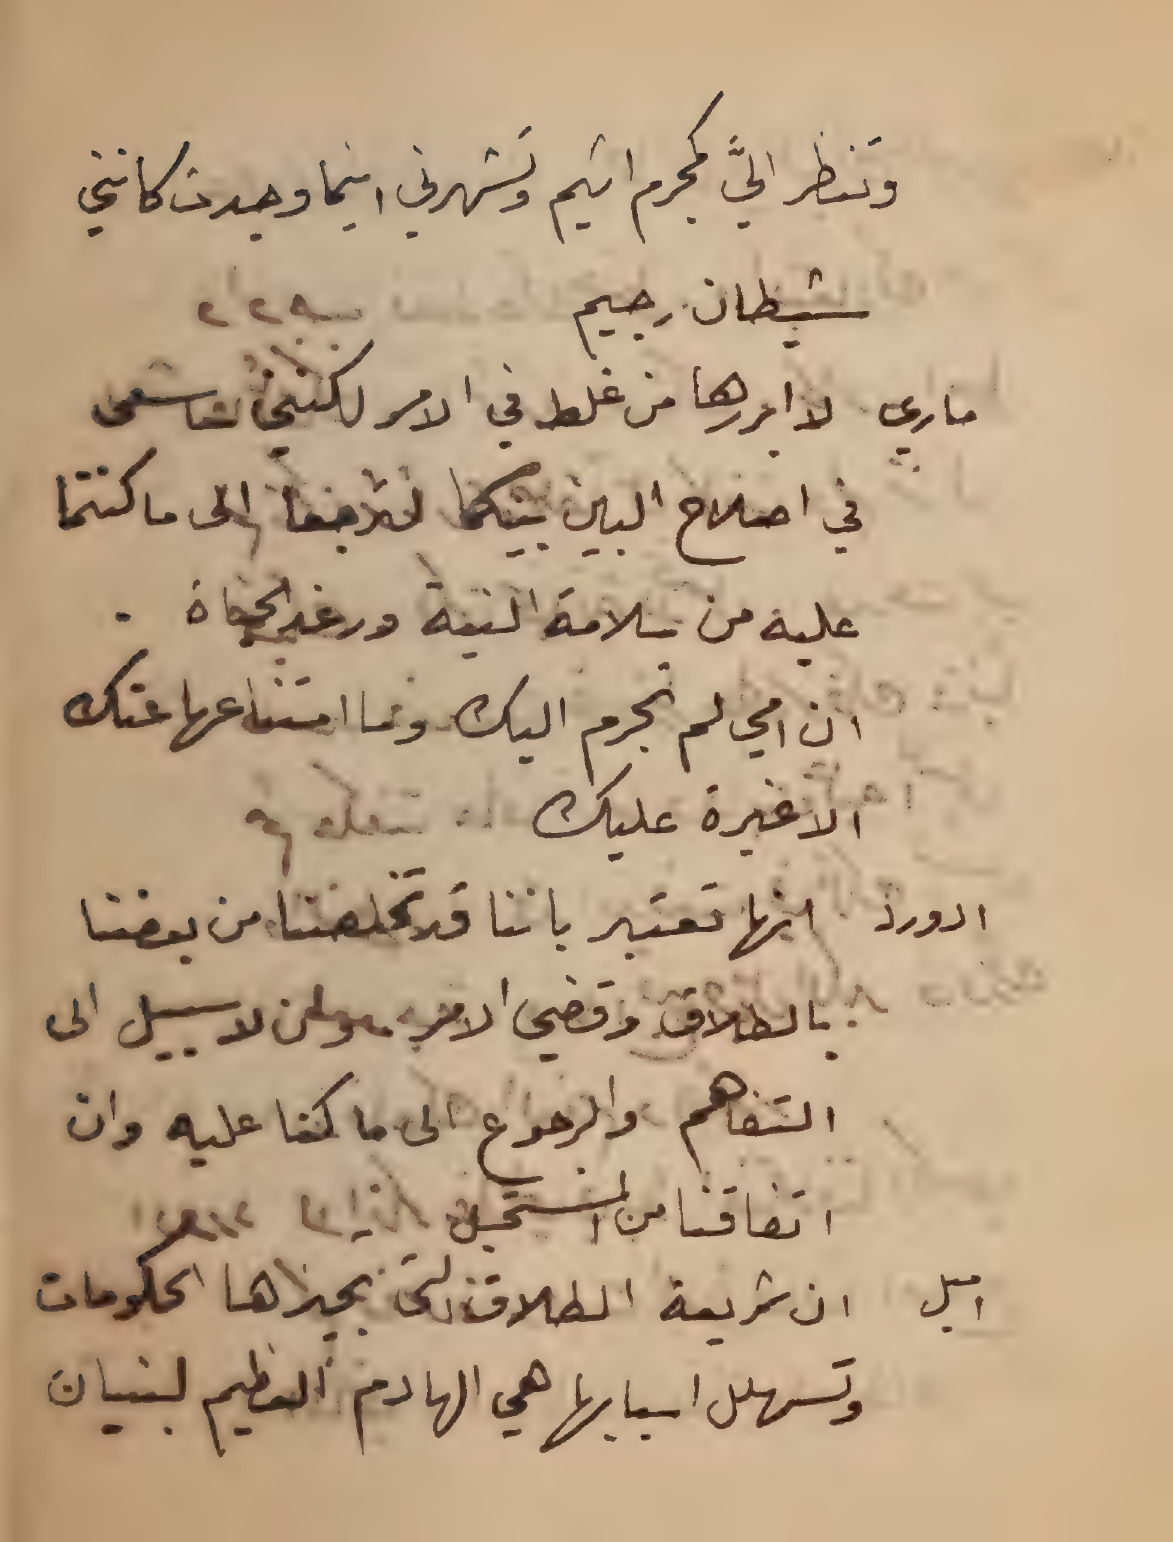 وتنظر اليَّ كمجرم اثيم وتشهرني اينما وجدت كانني
شيطان رجيم
ماري لا ابررها من غلط في الامر لكنني سأسعى
في اصلاح البين بينكما لترجعا الى ما كنتما
عليه من سلامة النية ورغد الحياة .
ان امي لم تجرم اليك وما امتناعها عنك
الا غيرة عليك
ادورد انها تعتبر باننا قد تخلصنا من بعضنا
بالطلاق وقضي الامر ولن لا سبيل الى
التفاهم والرجوع الى ما كنا عليه وان
اتفاقنا من المستحيل
اميل ان شريعة الطلاق التي تجيزها الحكومات
وتسهل اسبابها هي الهادم العظيم لبنيان